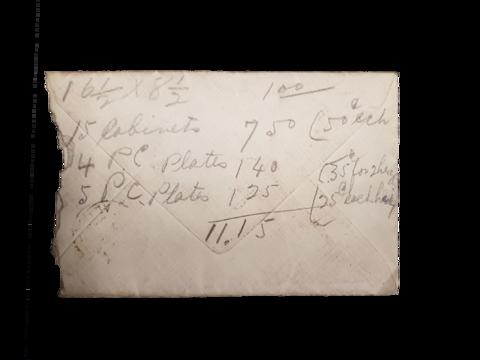 1 6½ X 8½ 1 00
15 Cabinets 7 50 (50c each
4 P.C. Plates 1 40 (35c for
5 P.C. Plates 1.25 (25c each
11.15